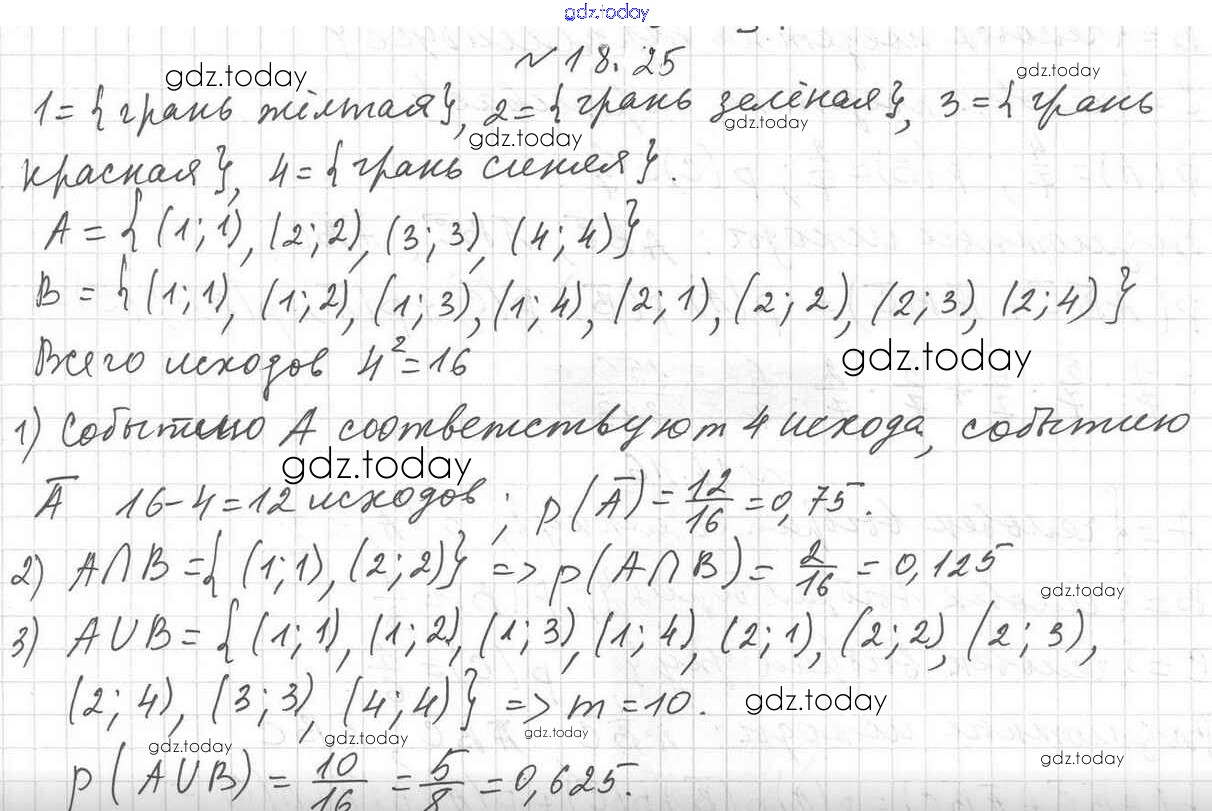 gdz.today
№ 18.25
gdz.today gdz.today
1 = {грань жёлтая}, 2 = {грань зелёная}, 3 = {грань
gdz.today gdz.today
красная}, 4 = {грань синяя}.
A = { (1; 1), (2; 2), (3; 3), (4; 4)}
B = { (1; 1), (1; 2), (1; 3), (1; 4), (2; 1), (2; 2), (2; 3), (2; 4) }
Всего исходов 4² = 16
gdz.today
1) Событию A соответствуют 4 исхода, событию
gdz.today
A̅ 16 - 4 = 12 исходов ; p(A̅) = 12/16 = 0,75.
2) A∩B = { (1; 1), (2; 2)} => p(A∩B) = 2/16 = 0,125
gdz.today
3) A∪B = { (1; 1), (1; 2), (1; 3), (1; 4), (2; 1), (2; 2), (2; 3),
(2; 4), (3; 3), (4; 4)} => m = 10.
gdz.today
gdz.today gdz.today gdz.today gdz.today
p(A∪B) = 10/16 = 5/8 = 0,625.